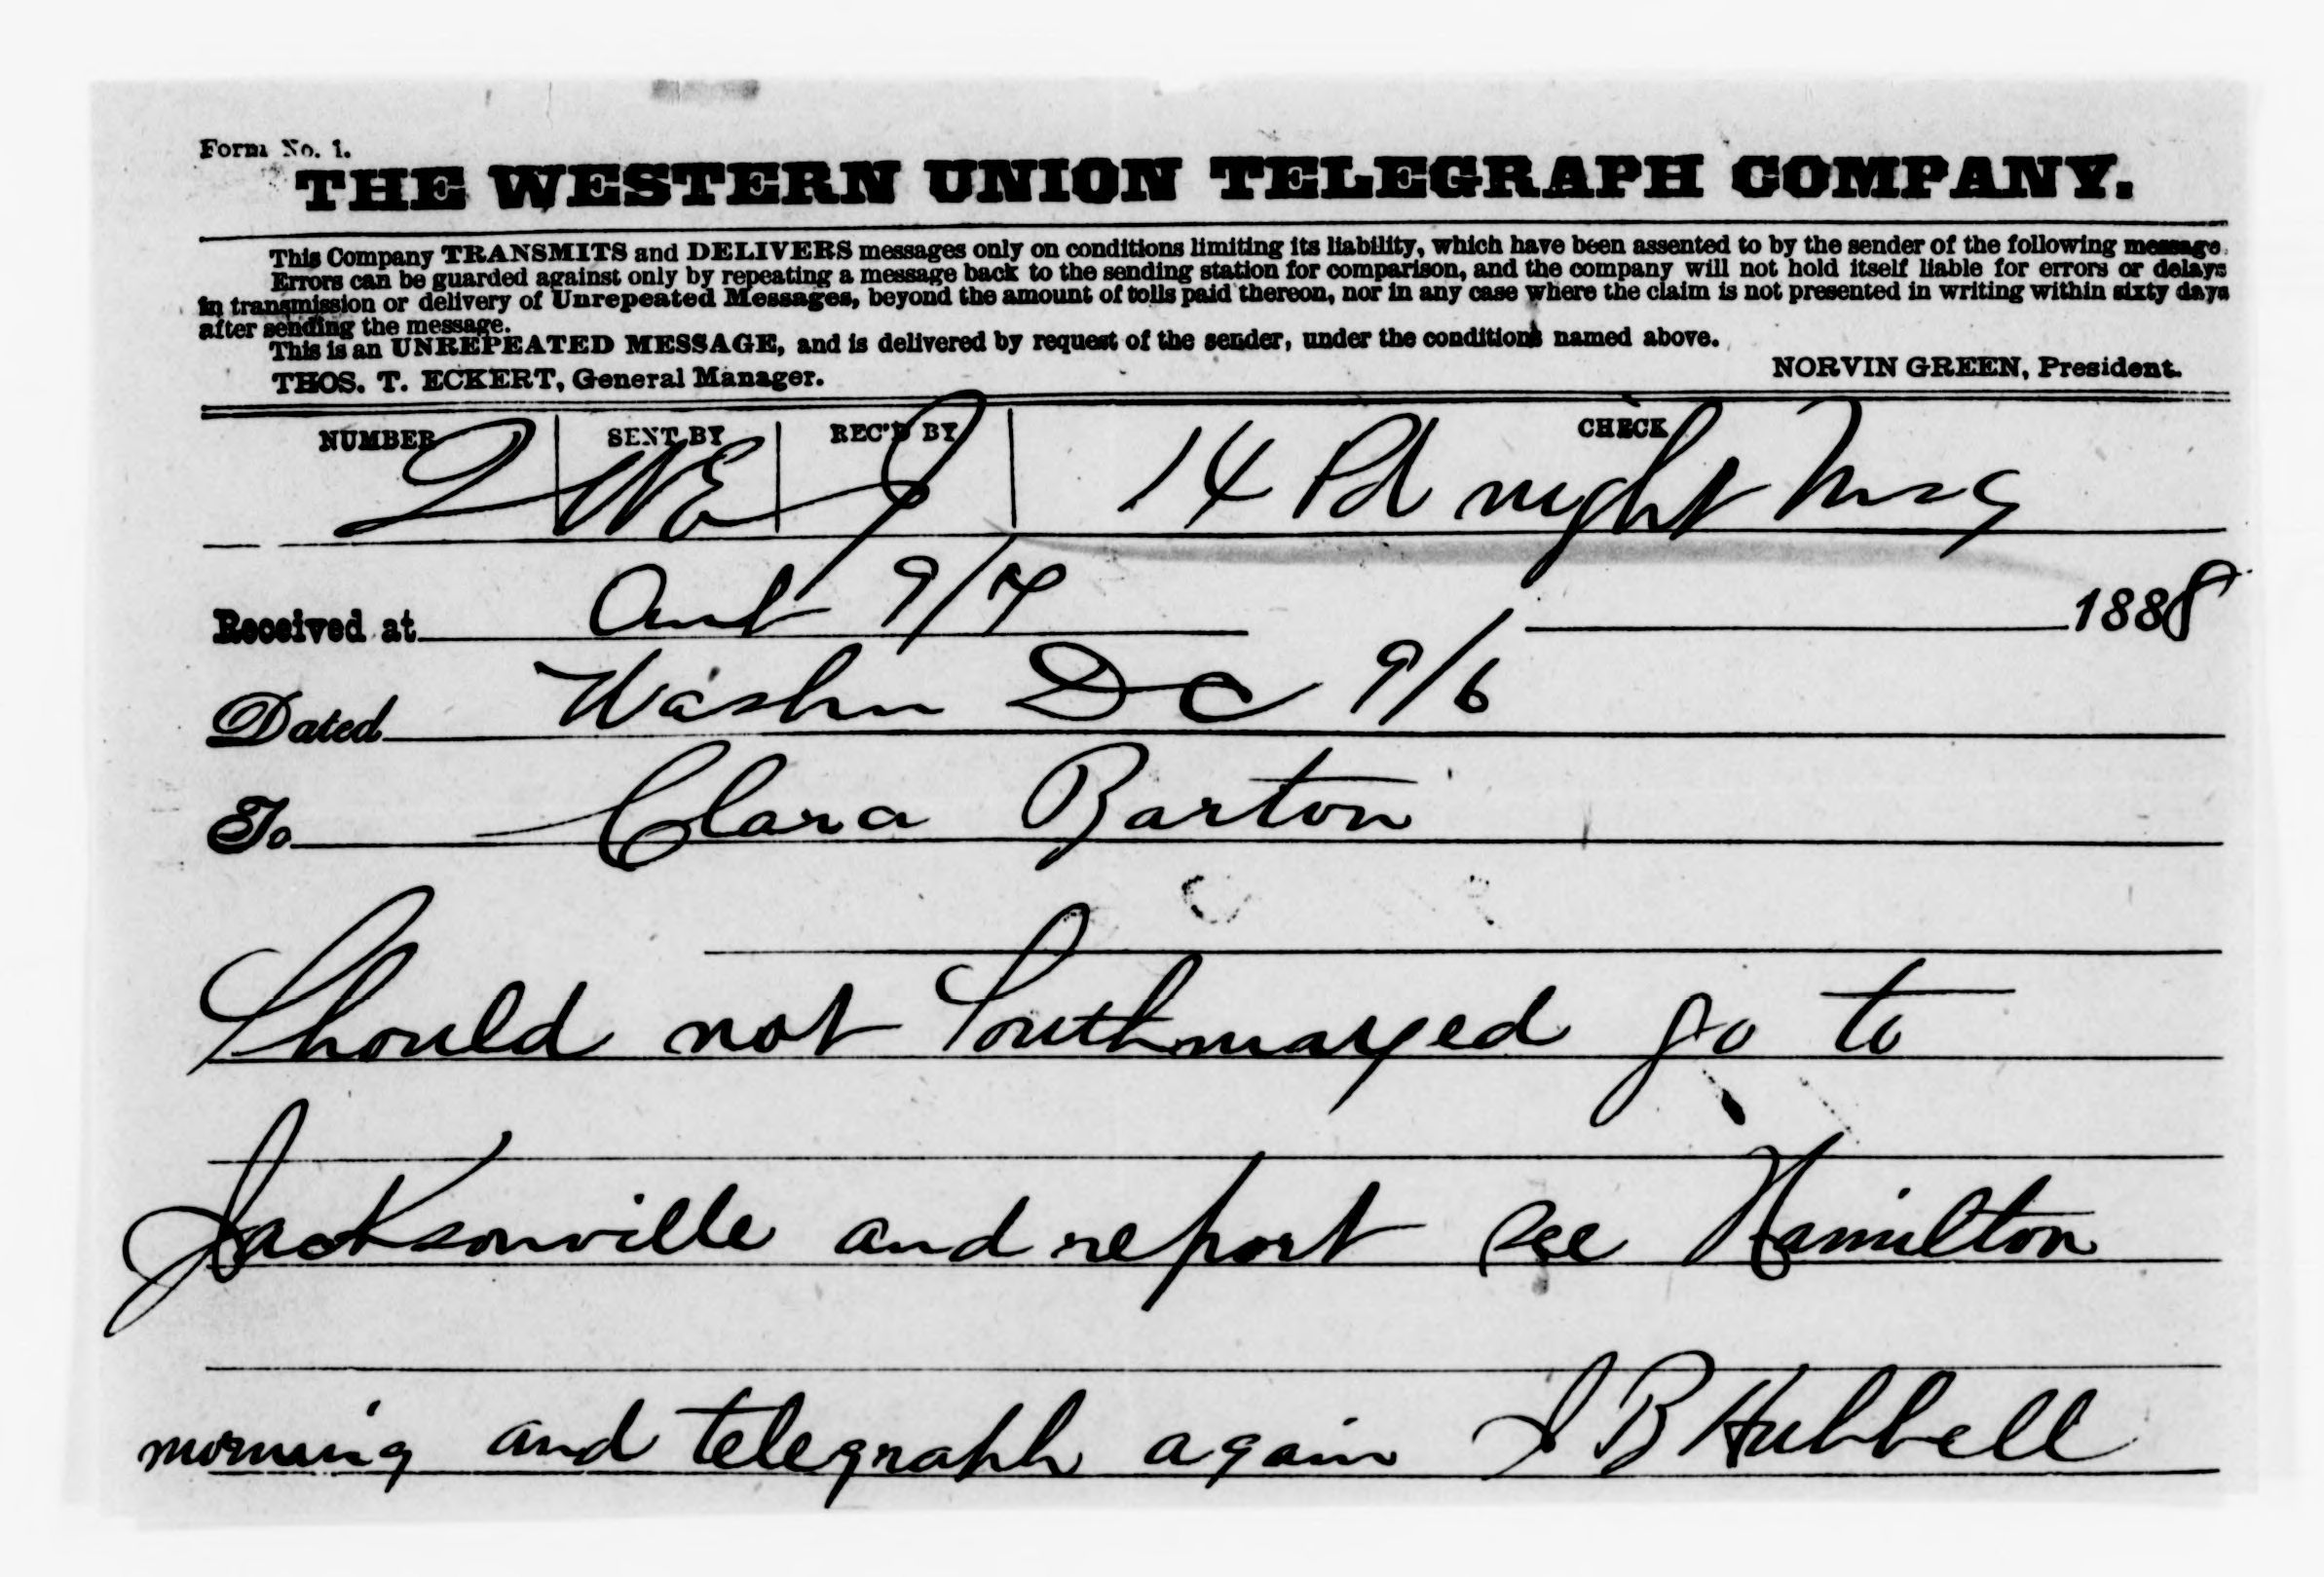 Form No. 1.
THE WESTERN UNION TELEGRAPH COMPANY.
This Company TRANSMITS and DELIVERS messages only on conditions limiting its liability, which have been assented to by the sender of the following message.
Errors can be guarded against only by repeating a message back to the sending station for comparison, and the company will not hold itself liable for errors or delays
in transmission or delivery of Unrepeated Messages, beyond the amount of tolls paid thereon, nor in any case where the claim is not presented in writing within sixty days
after sending the message.
This is an UNREPEATED MESSAGE, and is delivered by request of the sender, under the conditions named above.
THOS. T. ECKERT, General Manager. NORVIN GREEN, President.
NUMBER SENT BY REC'D BY CHECK
2 WE 14 Pd night Msg
Received at 9/7 1888
Dated Washn DC 9/6
To Clara Barton
Should not Southmayed go to
Jacksonville and report see Hamilton
morning and telegraph again J B Hubbell